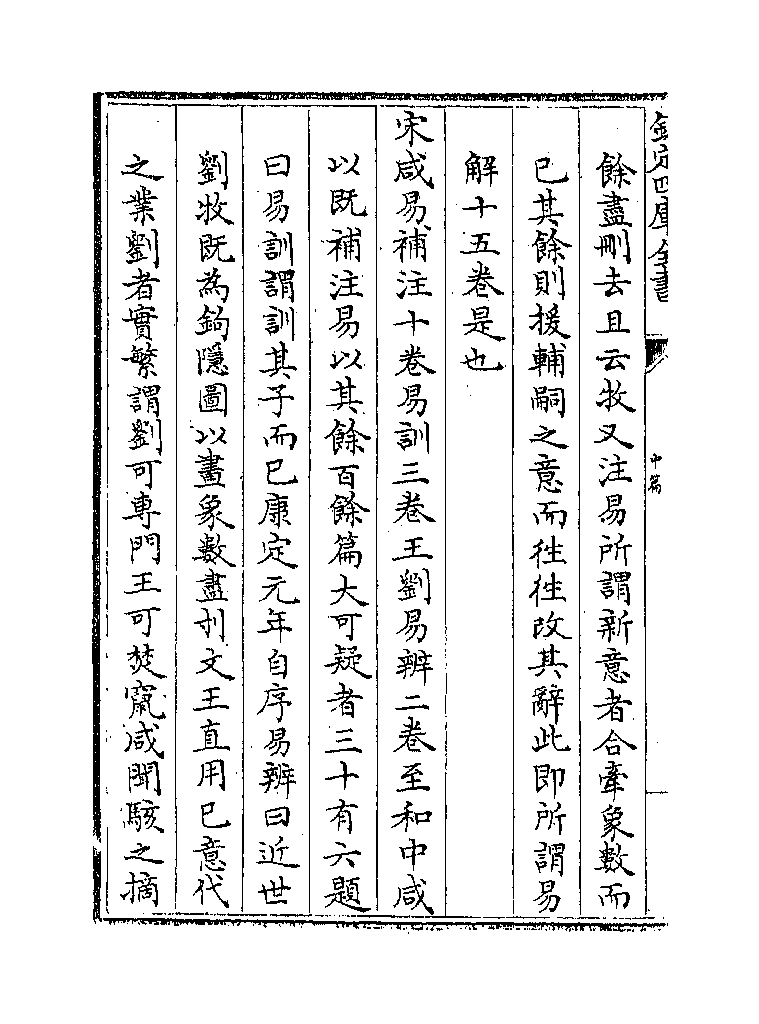 欽定四庫全書
中篇
餘盡刪去且云牧又注易所謂新意者合牽象數而
已其餘則援輔嗣之意而徃徃改其辭此即所謂易
解十五卷是也
宋咸易補注十卷易訓三卷王劉易辨二卷至和中咸
以既補注易以其餘百餘篇大可疑者三十有六題
曰易訓謂訓其子而已康定元年自序易辨曰近世
劉牧既為鉤隱圖以畫象數盡刋文王直用已意代
之業劉者實繁謂劉可專門王可焚竄咸聞駭之摘